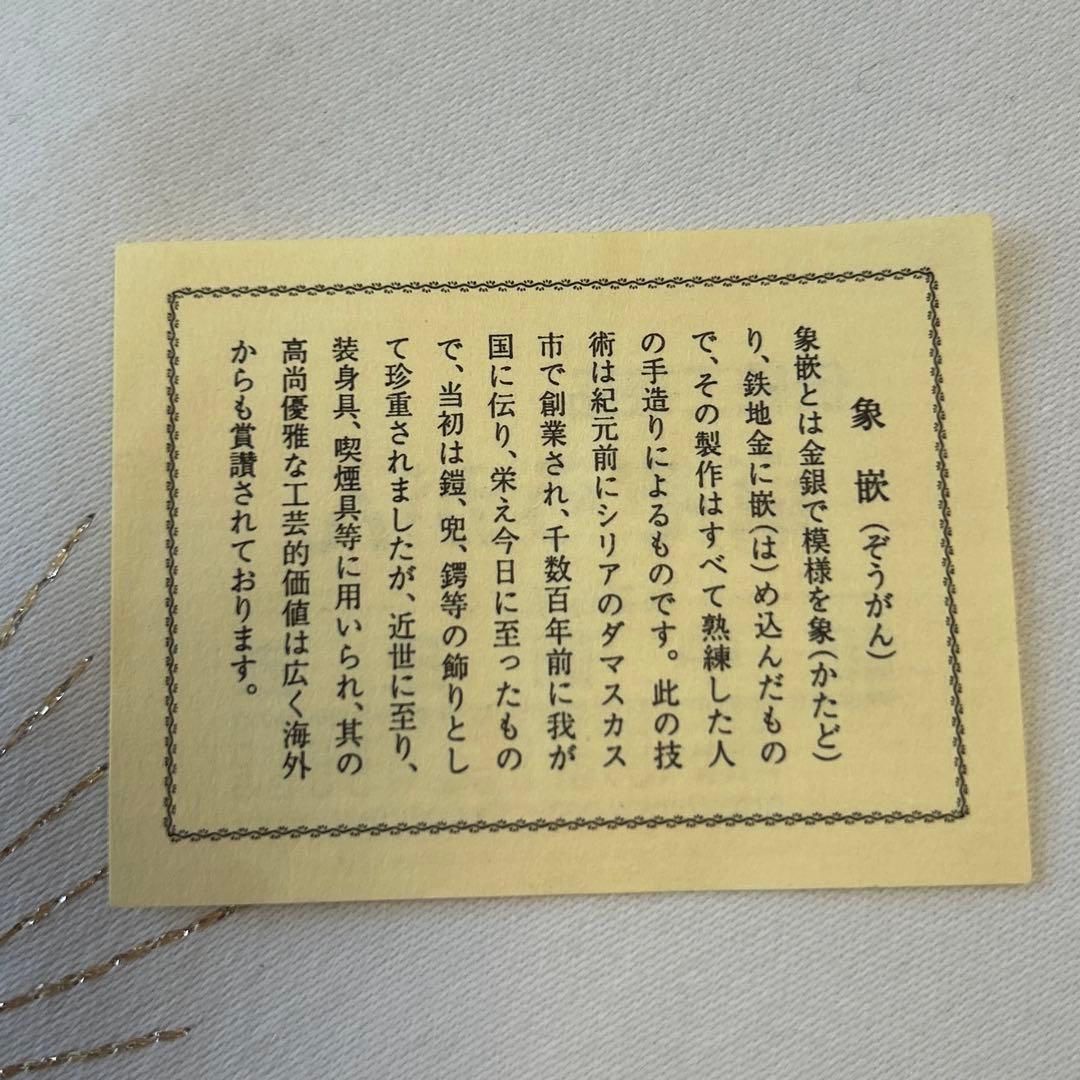 象嵌(ぞうがん)
象嵌とは金銀で模様を象(かたど)
り、鉄地金に嵌(は)め込んだもの
で、その製作はすべて熟練した人
の手造りによるものです。此の技
術は紀元前にシリアのダマスカス
市で創業され、千数百年前に我が
国に伝り、栄え今日に至ったもの
で、当初は鎧、兜、鍔等の飾りとし
て珍重されましたが、近世に至り、
装身具、喫煙具等に用いられ、其の
高尚優雅な工芸的価値は広く海外
からも賞讃されております。